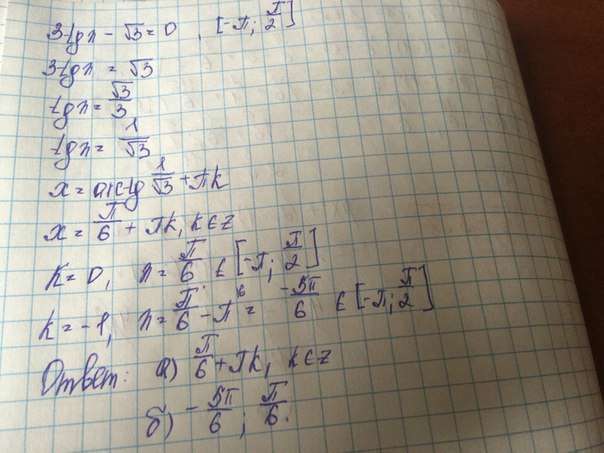 3tgx - √3 = 0 , [-π; π/2]
3tgx = √3
tgx = √3/3
tgx = 1/√3
x = arctg 1/√3 + πk
x = π/6 + πk, k∈Z
k = 0, x = π/6 ∈ [-π; π/2]
k = -1, x = π/6 - π = -5π/6 ∈ [-π; π/2]
Ответ: а) π/6 + πk, k∈Z
б) -5π/6 ; π/6.